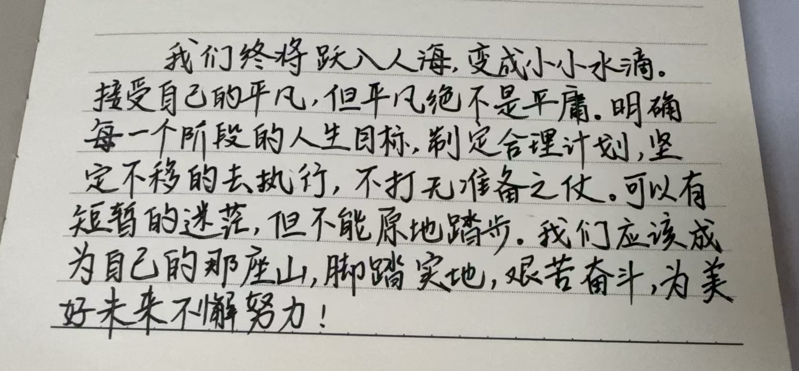 我们终将跃入人海,变成小小水滴。
接受自己的平凡,但平凡绝不是平庸。明确
每一个阶段的人生目标,制定合理计划,坚
定不移的去执行,不打无准备之仗。可以有
短暂的迷茫,但不能原地踏步。我们应该成
为自己的那座山,脚踏实地,艰苦奋斗,为美
好未来不懈努力!